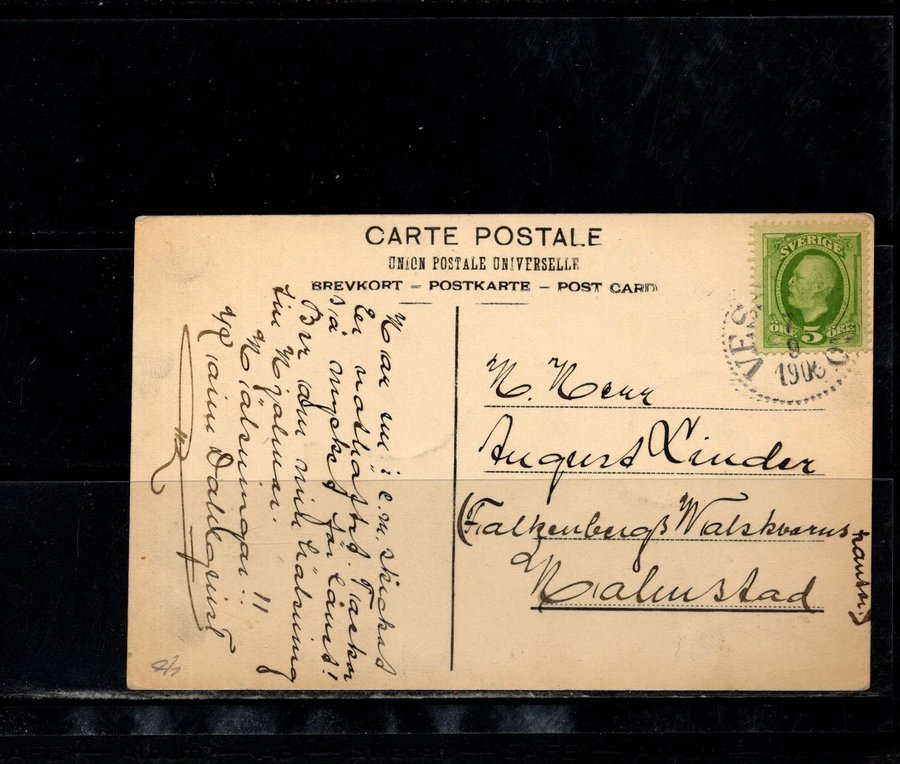 CARTE POSTALE
UNION POSTALE UNIVERSELLE
BREVKORT – POSTKARTE – POST CARD
SVERIGE
ÖRE 5 ÖRE
VES
9
1906
Har nu i e.m. skickat
Er nothäftet. Tackar
så mycket för lånet!
Ber du vill hälsning
till Hjalmar.
Hälsningar!!
Dahlqvist
H. Herr
August Linder
(Falkenbergs Valskvarns
Halmstad